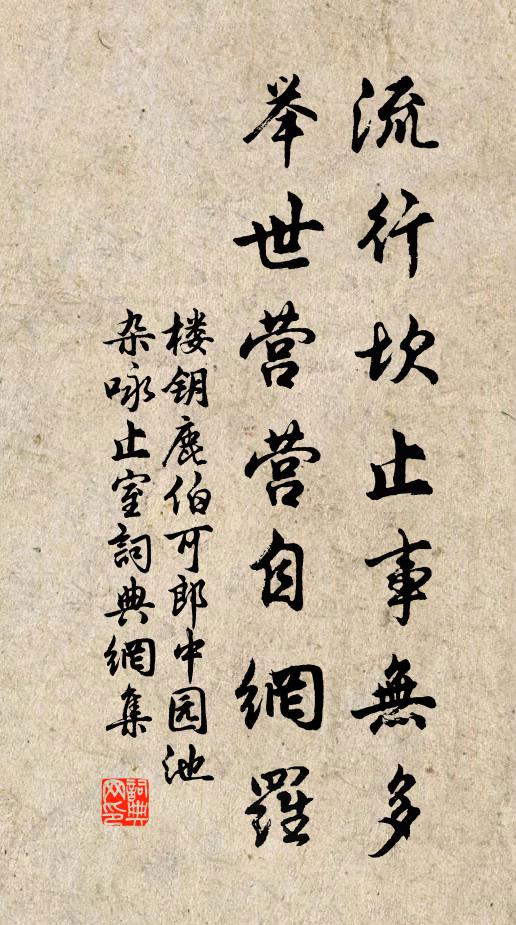 流行坎止事無多
举世营营自網羅
楼钥鹿伯可郎中园池
杂咏止室詞典網集
詞典
网印